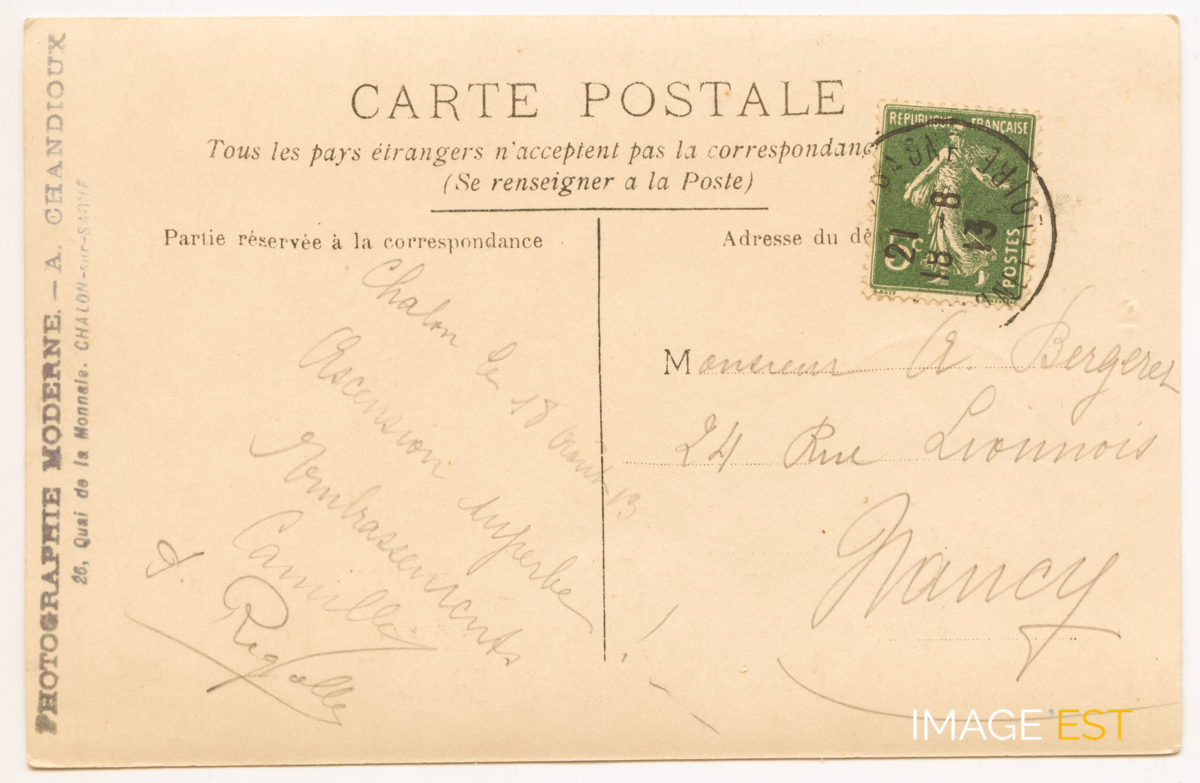 PHOTOGRAPHIE MODERNE. — A. CHANDIOUX
26, Quai de la Monnaie. CHALON-sur-SAONE
CARTE POSTALE
Tous les pays étrangers n'acceptent pas la correspondanc
(Se renseigner a la Poste)
RÉPUBLIQUE FRANÇAISE
5c
POSTES
21
18 - 8
13
Partie réservée à la correspondance
Chalon le 18 Aout 13
Ascension superbe
Embrassements
Camille
Rigolle
Adresse du de
Monsieur A. Bergeret
24 Rue Lionnois
Nancy
IMAGE'EST